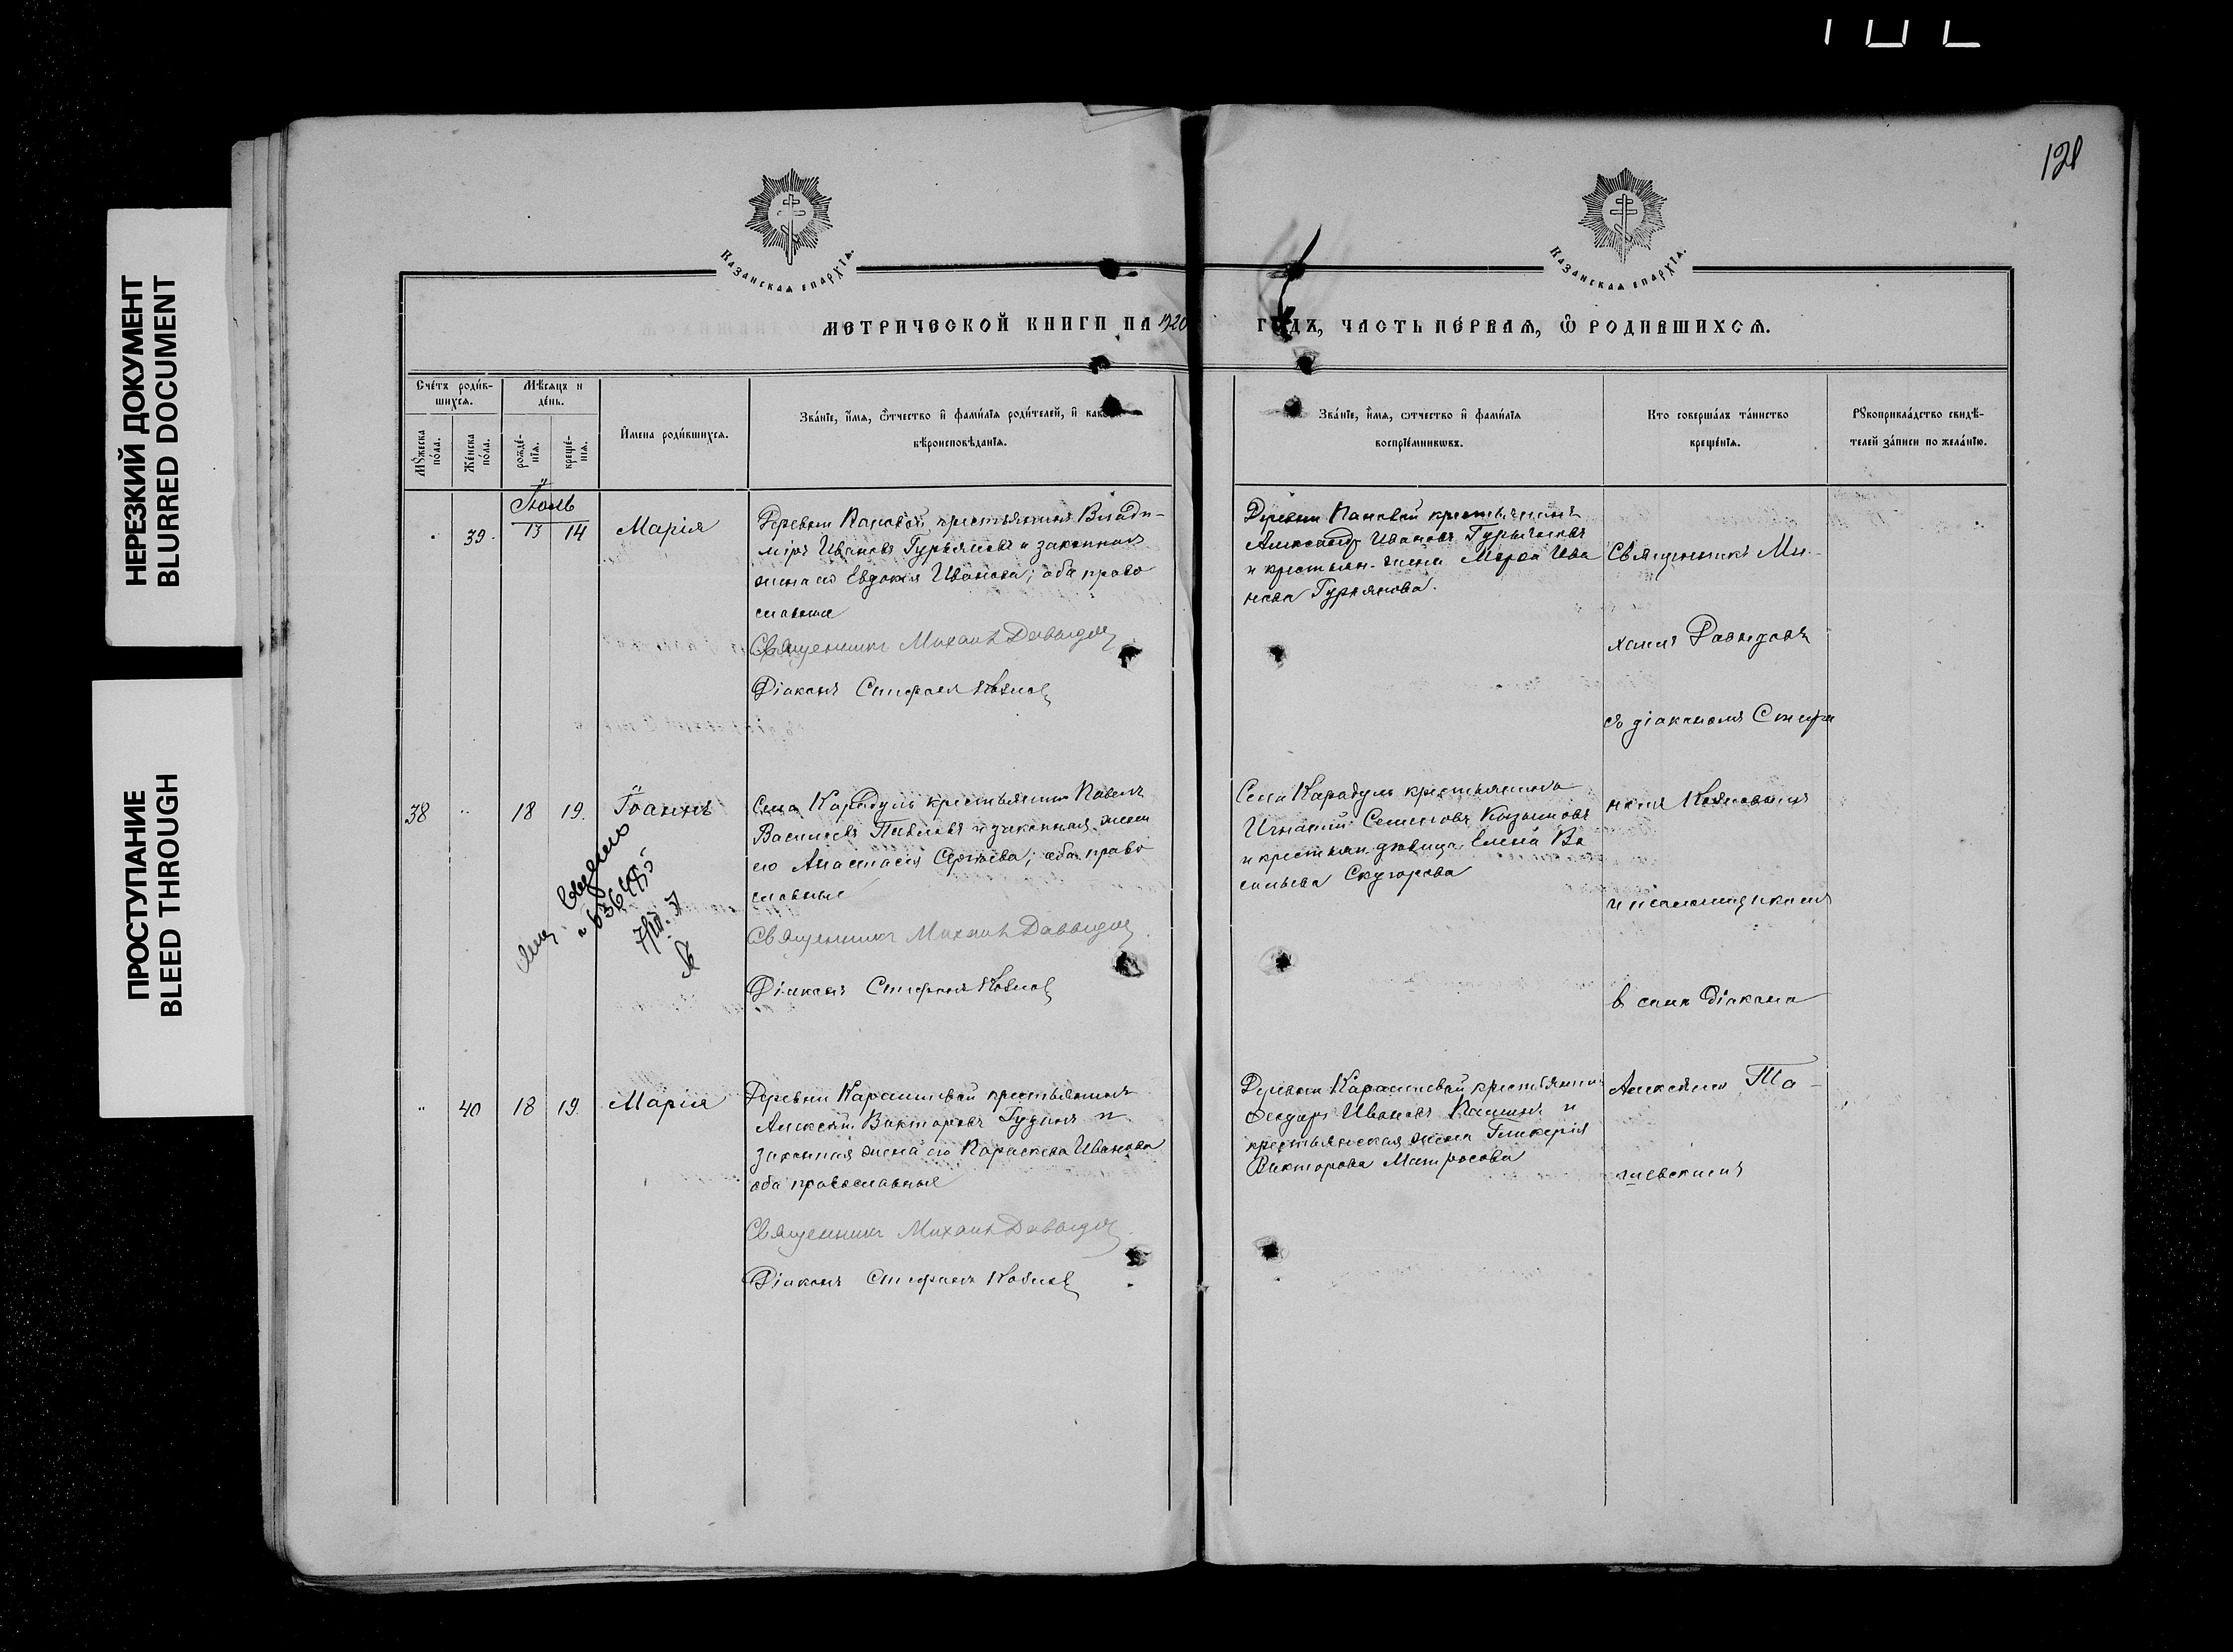 НЕРЕЗКИЙ ДОКУМЕНТ
BLURRED DOCUMENT
ПРОСТУПАНИЕ
BLEED THROUGH
128
Казанская епархїѧ.
Казанская епархїѧ.
МЕТРИЧЕСКОЙ КНИГИ НА 1920
ГОДЪ, ЧАСТЬ ПЕ́РВАЯ, Ѽ РОДИВШИХСЯ.
Сче́тъ роди́в-
шихся.
Мѣ́сяцъ и
де́нь.
Мꙋ́жеска
по́ла.
Же́нска
по́ла.
рожде́-
нїя.
креще́-
нїя.
И́мена роди́вшихся.
Зва́нїе, и́мя, ѻ́тчество и фами́лїя роди́телей, и како́гѡ
вѣроисповѣ́данїя.
Зва́нїе, и́мя, ѻтчество и фами́лїя
воспрїе́мникѡвъ.
Кто соверша́лъ та́инство
креще́нїя.
Рꙋкоприкла́дство свидѣ́-
телей за́писи по жела́нїю.
Іюль
39. 13 14 Марія
Деревни Пановой крестьянинъ Влади-
міръ Ивановъ Гурьяновъ и законная
жена его Евдокія Иванова; оба право
славные
Священникъ Михаилъ Давыдов
Діаконъ Стефанъ Ковлов
Деревни Пановой крестьянинъ
Александр Ивановъ Гурьяновъ
и крестьян. жена Марѳа Ива
нова Гурьянова.
Священникъ Ми-
хаилъ Давыдовъ
съ діакономъ Стефа
номъ Ковловымъ
и псаломщикомъ
в санѣ діакона
Алексѣемъ Та-
шевскимъ
38 " 18 19. Іоаннъ
Села Карадуль крестьянинъ Павелъ
Васильевъ Павловъ и законная жена
его Анастасія Сергѣева; оба право
славные
Священникъ Михаилъ Давыдов
Діаконъ Стефанъ Ковлов
7/III.
Села Карадуль крестьянинъ
Игнатій Семеновъ Козминовъ
и крестьян. дѣвица Елена Ва
сильева Скугорова
" 40 18 19. Марія
Деревни Карашевой крестьянинъ
Алексѣй Викторовъ Гудинъ и
законная жена его Параскева Иванова
оба православные
Священникъ Михаилъ Давыдов
Діаконъ Стефанъ Ковлов
Деревни Карашевой крестьянинъ
Ѳеодоръ Ивановъ Пашинъ и
крестьянская жена Гликерія
Викторова Матросова